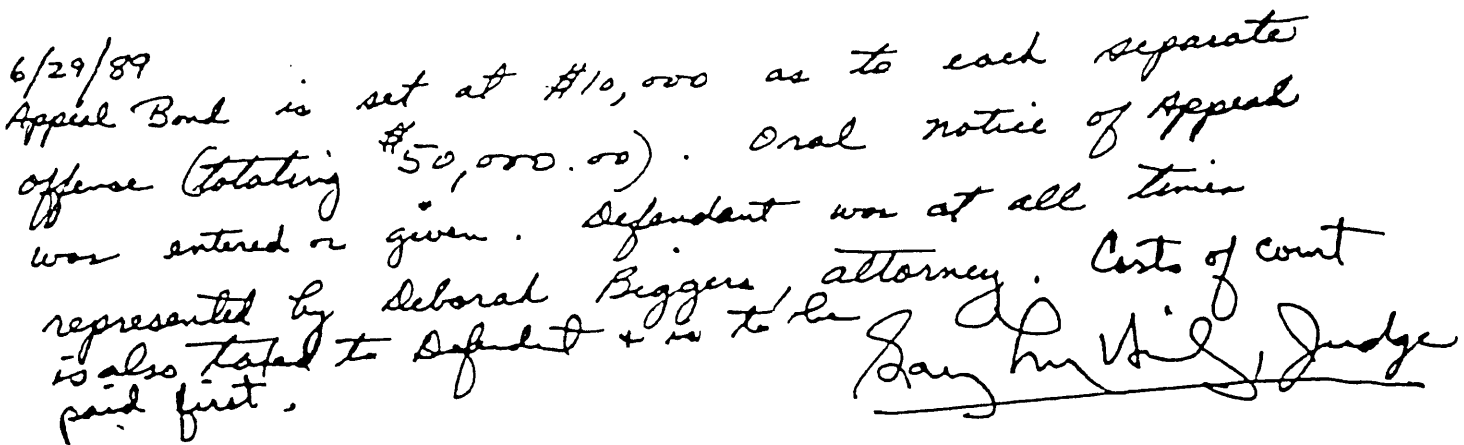 6/29/89
Appeal Bond is set at $10,000 as to each separate
offense (totating $50,000.00). Oral notice of Appeal
was entered or given. Defendant was at all times
represented by Deborah Biggers, attorney. Costs of court
is also taxed to Defendant + is to be
paid first.
Judge